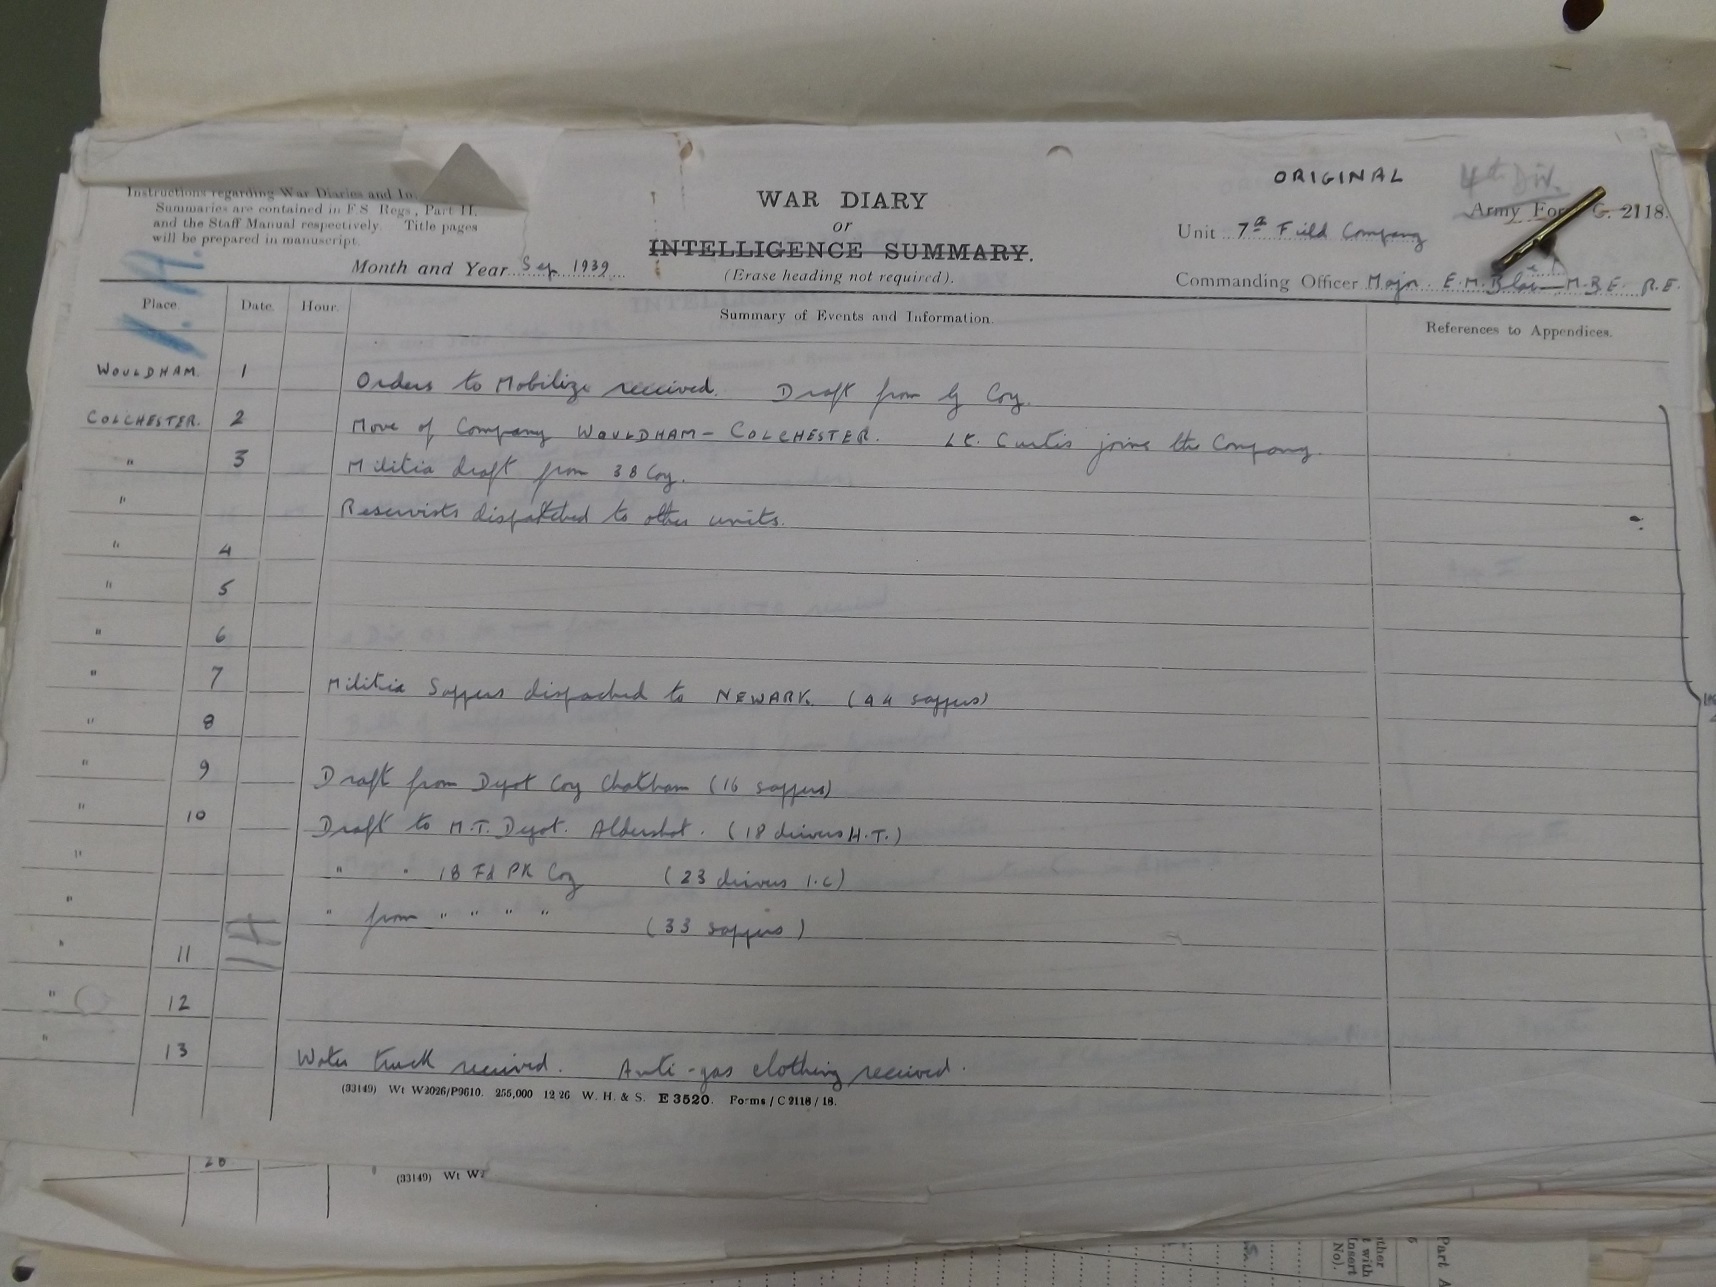 ORIGINAL
4th Div.
Instructions regarding War Diaries and In
Summaries are contained in F.S. Regs., Part II.
and the Staff Manual respectively. Title pages
will be prepared in manuscript.
WAR DIARY
or
INTELLIGENCE SUMMARY.
(Erase heading not required).
Month and Year Sep. 1939
Army For C. 2118.
Unit 7th Field Company
Commanding Officer Major E.M. M.B.E. R.E.
Place. Date. Hour. Summary of Events and Information. References to Appendices.
WOULDHAM. 1 Orders to Mobilize received. Draft from Coy.
COLCHESTER. 2 Move of Company WOULDHAM - COLCHESTER. Lt. Curtis joins the Company.
" 3 Militia draft from 38 Coy.
" Reservists dispatched to other units.
" 4
" 5
" 6
" 7 Militia Sappers dispached to NEWARK. (44 sappers)
" 8
" 9 Draft from Depot Coy Chatham (16 sappers)
" 10 Draft to M.T. Depot. Aldershot. (18 drivers H.T.)
" " " 18 Fd PK Coy (23 drivers I.C)
" " from " " " " (33 sappers)
" 11
" 12
" 13 Water truck received. Anti-gas clothing received.
(33149) Wt W3026/P9610. 255,000 12 26 W. H. & S. E 3520. Forms/C 2118/18.
(33149) Wt W
Part A